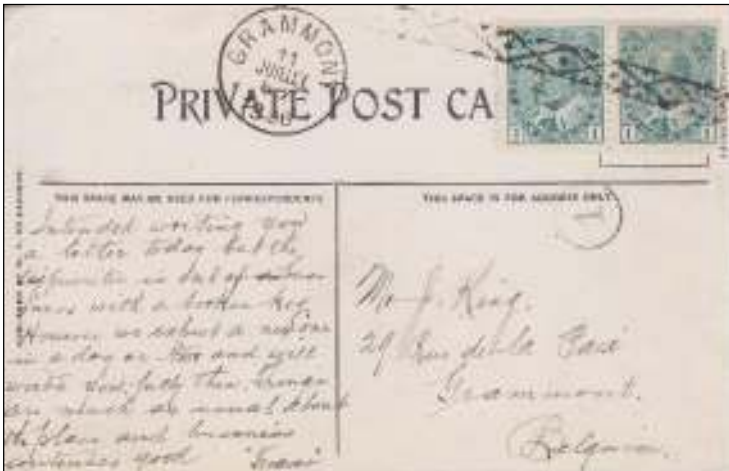 GRAMMONT
11
JUILLET
PRIVATE POST CA
1 1
1 1
THIS SPACE MAY BE USED FOR CORRESPONDENCE
THIS SPACE IS FOR ADDRESS ONLY.
1
Intended writing you
a letter today but the
typewriter is out of
with a broken key
However we expect a new one
in a day or two and will
write you fully then.
are much as usual about
the place and business
continues good
Mr J. King.
29 Rue de la Paix
Grammont.
Belgium.